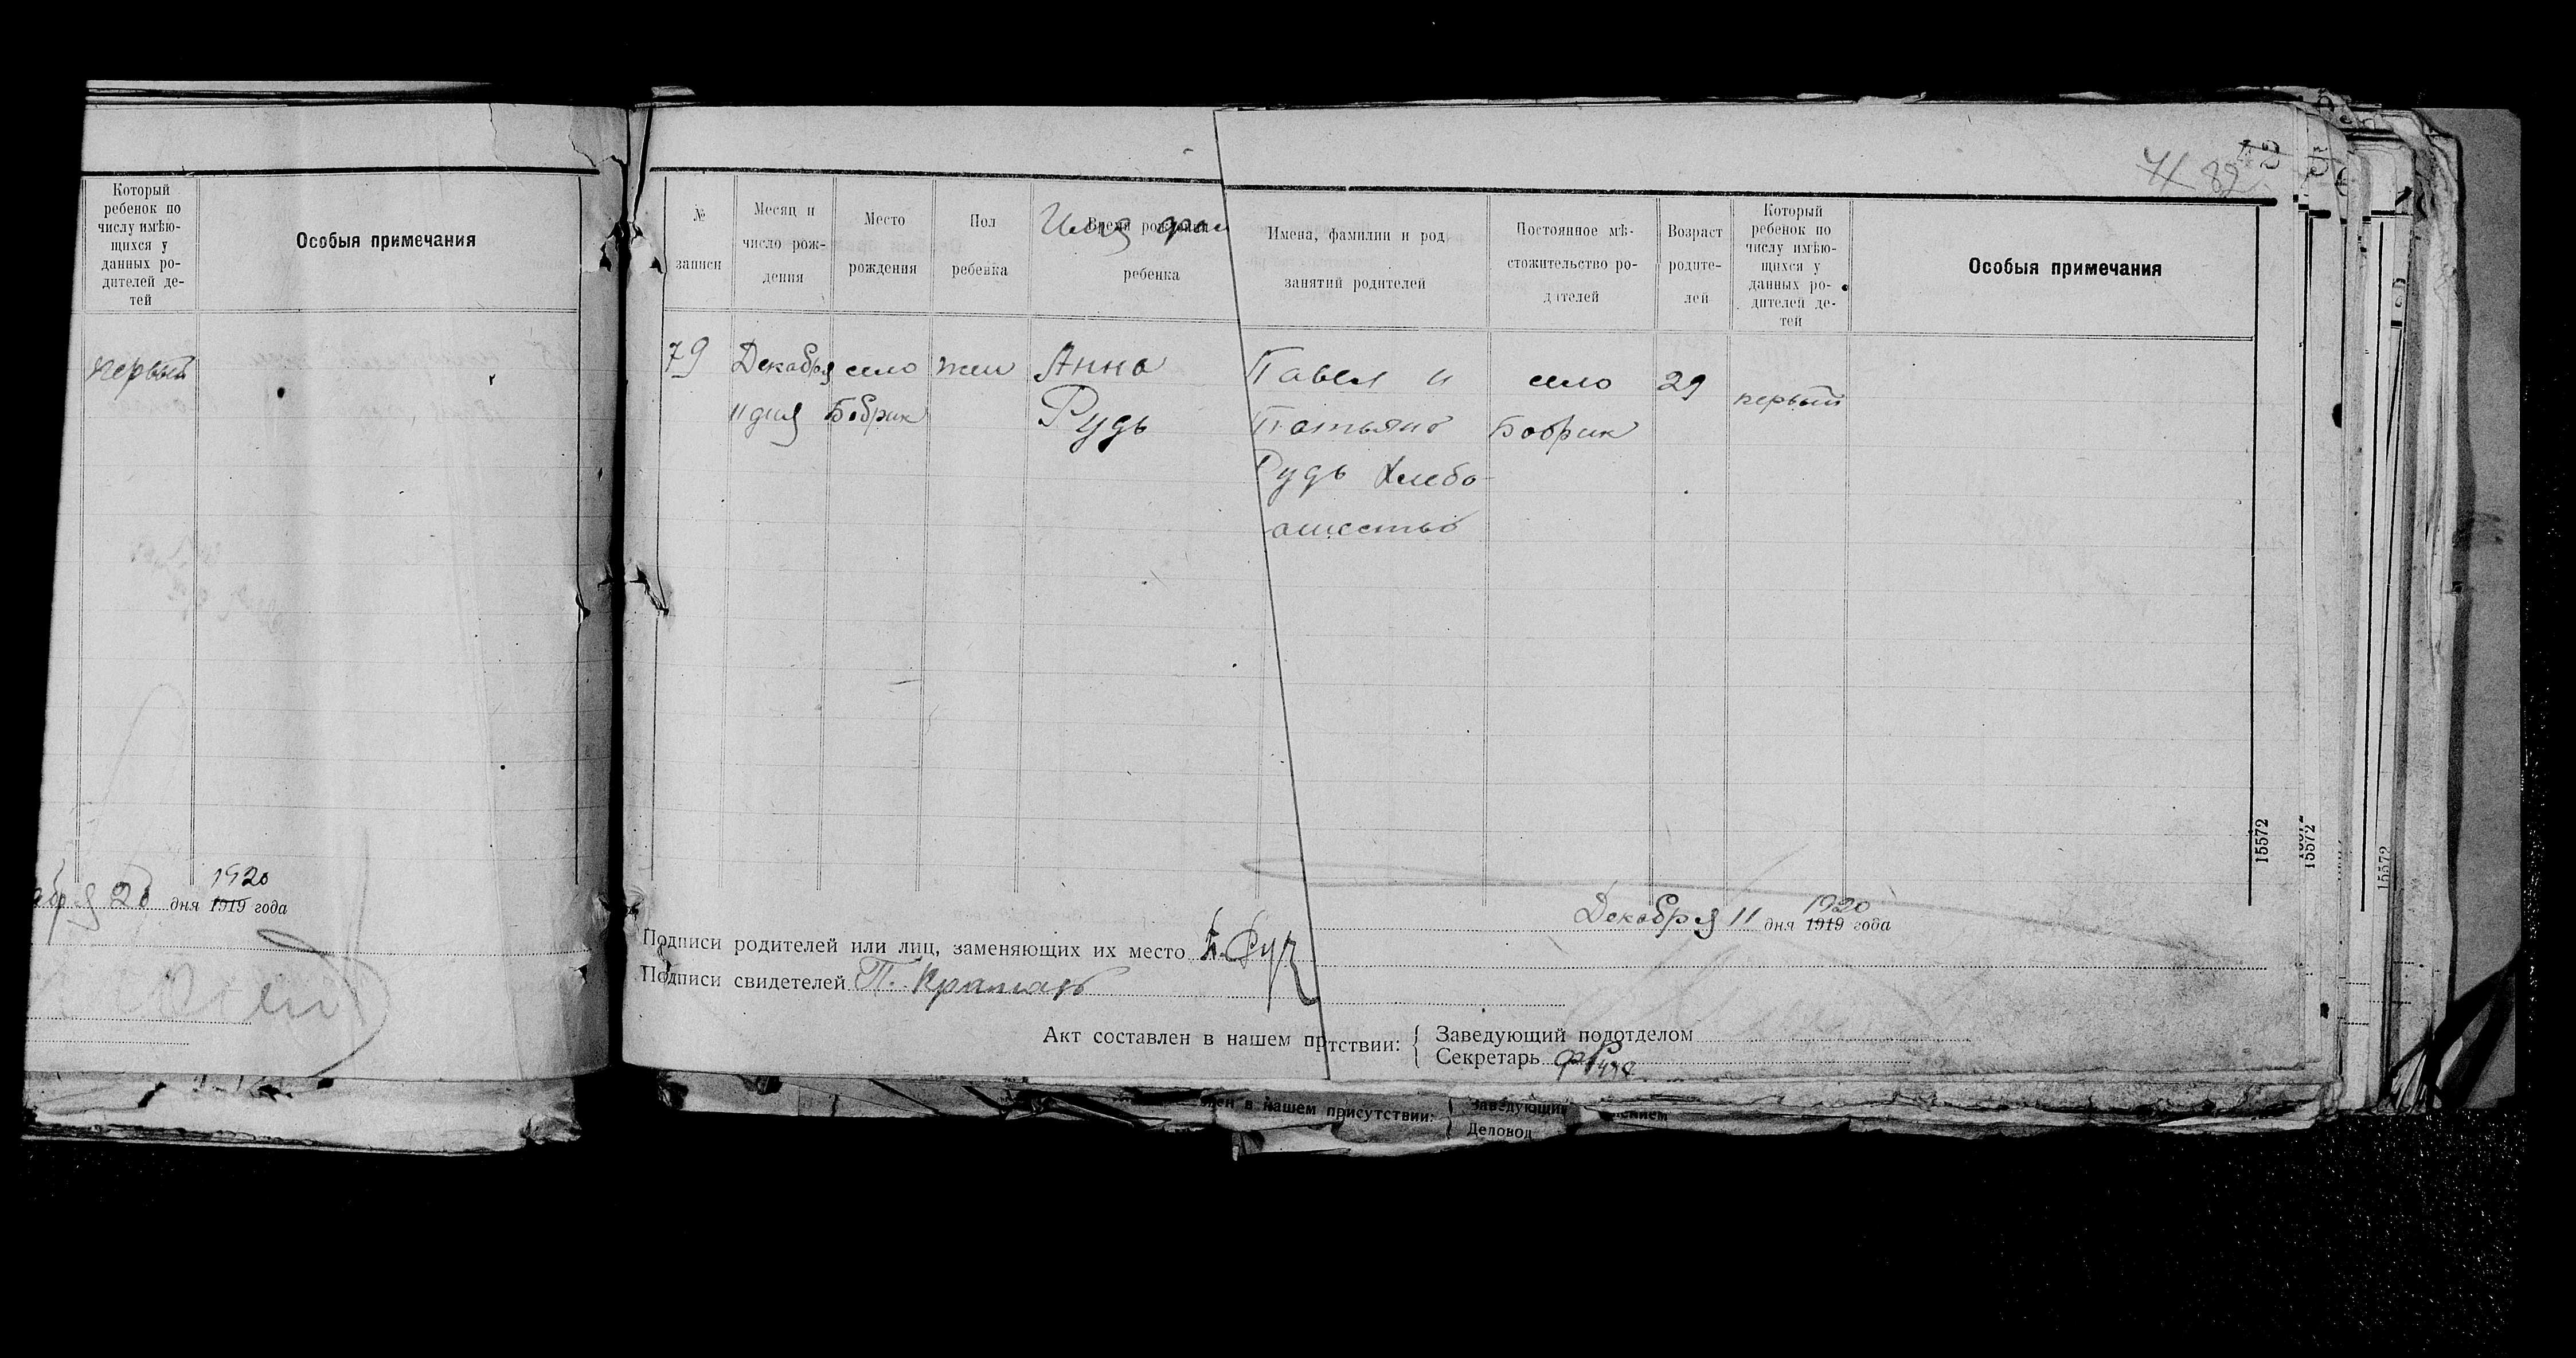 Который
ребенок по
числу имѣю-
щихся у
данных ро-
дителей де-
тей
Особыя примечания
первый
1920
абря 20 дня 1919 года
82
№
записи
Месяц и
число рож-
дения
Место
рождения
Пол
ребенка
Имя фам
Время рождения
ребенка
Имена, фамилии и род
занятий родителей
Постоянное мѣ-
стожительство ро-
дителей
Возраст
родите-
лей
Который
ребенок по
числу имѣю-
щихся у
данных ро-
дителей де-
тей
Особыя примечания
79 Декабря село жен Анна Павел и село 29 первый
11 дня Бобрик Рудь Татьяна Бобрик
Рудь Хлебо-
пашество
15572
15572
15572
1920
Декабря 11 дня 1919 года
Подписи родителей или лиц, заменяющих их место
Подписи свидетелей П.
Акт составлен в нашем пртствии: Заведующий подотделом
Секретарь
в нашем присутствии: Заведующий
Деловод